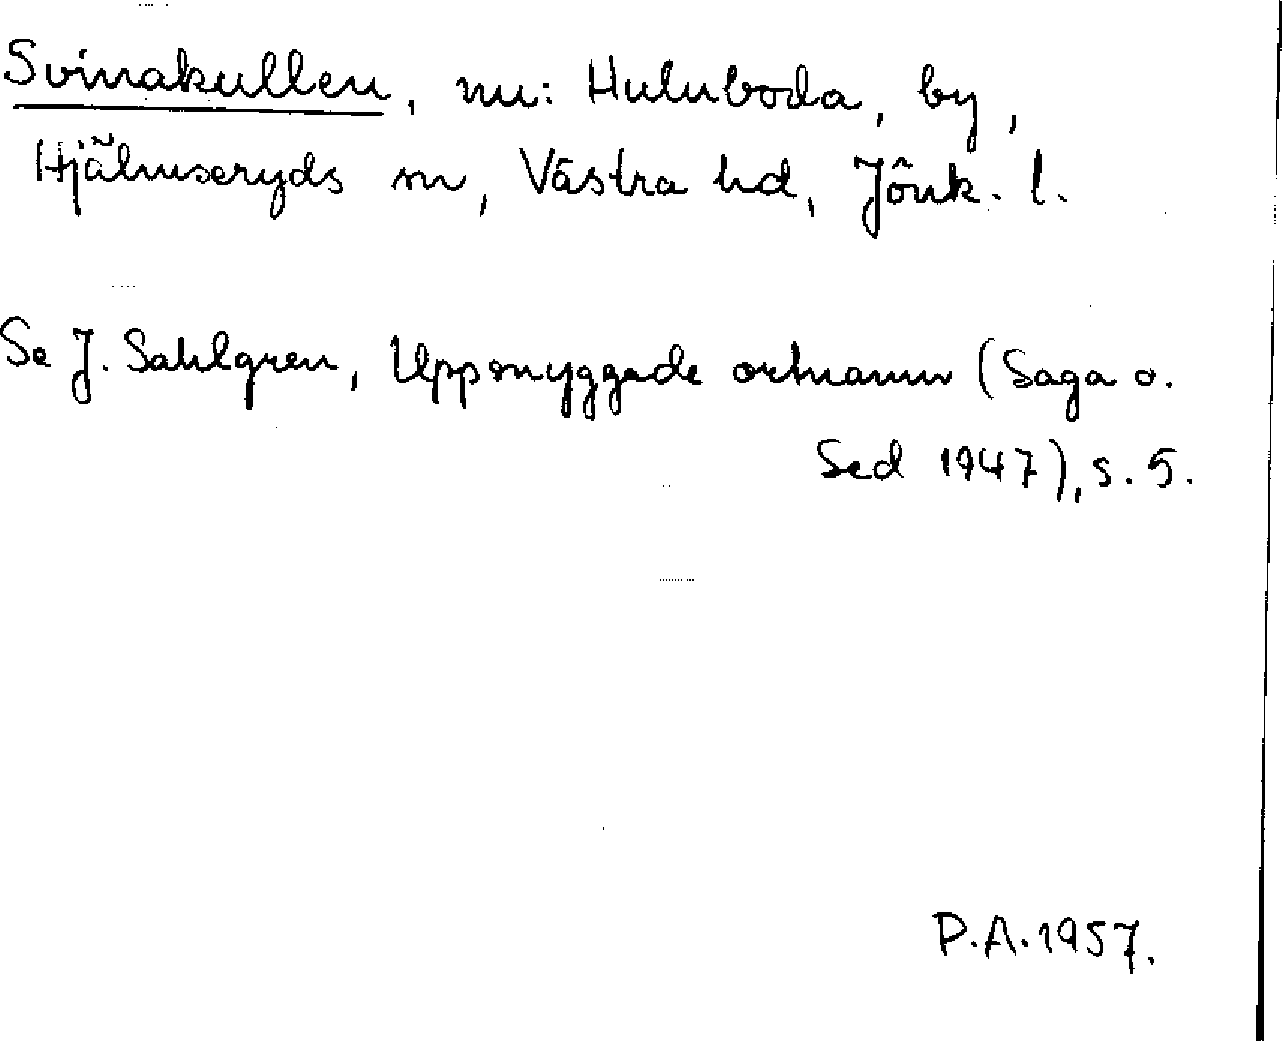 Svinakullen, nu: Huluboda, by,
Hjälmseryds sn, Västra hd, Jönk. l.
Se J. Sahlgren, Uppsnyggade ortnamn (Saga o.
Sed 1947), s. 5.
P.A. 1957.